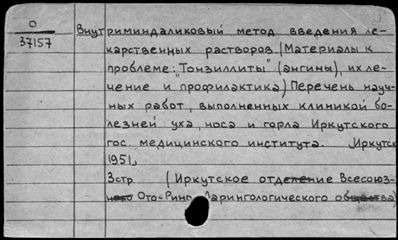 О
37157
Внутриминдаликовый метод введения ле-
карственных растворов. (Материалы к
проблеме: "Тонзиллиты" (ангины), их ле-
чение и профилактика) Перечень науч-
ных работ, выполненных клиникой бо-
лезней уха, носа и горла Иркутского
гос. медицинского института. Иркутск
1951,
3стр (Иркутское отделение Всесоюз-
ного Ото-Рино-Ларингологического общества)